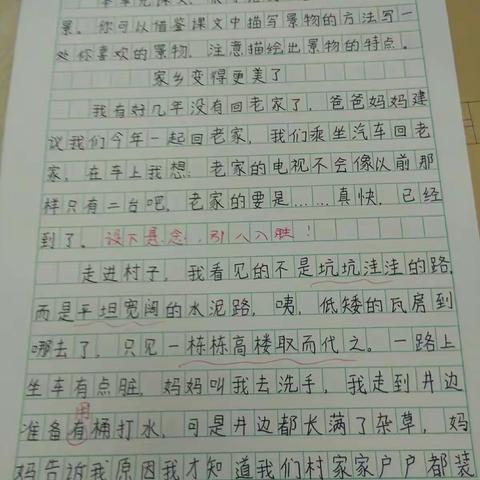 景。你可以借鉴课文中描写景物的方法写一
处你喜欢的景物，注意描绘出景物的特点。
家乡变得更美了
我有好几年没有回老家了，爸爸妈妈建
议我们今年一起回老家，我们乘坐汽车回老
家，在车上我想：老家的电视不会像以前那
样只有二台吧，老家的要是……真快，已经
到了。设下悬念，引人入胜！
走进村子，我看见的不是坑坑洼洼的路，
而是平坦宽阔的水泥路，咦，低矮的瓦房到
哪去了，只见一栋栋高楼取而代之。一路上
坐车有点脏，妈妈叫我去洗手，我走到井边
用
准备有桶打水，可是井边都长满了杂草，妈
妈告诉我原因我才知道我们村家家户户都装